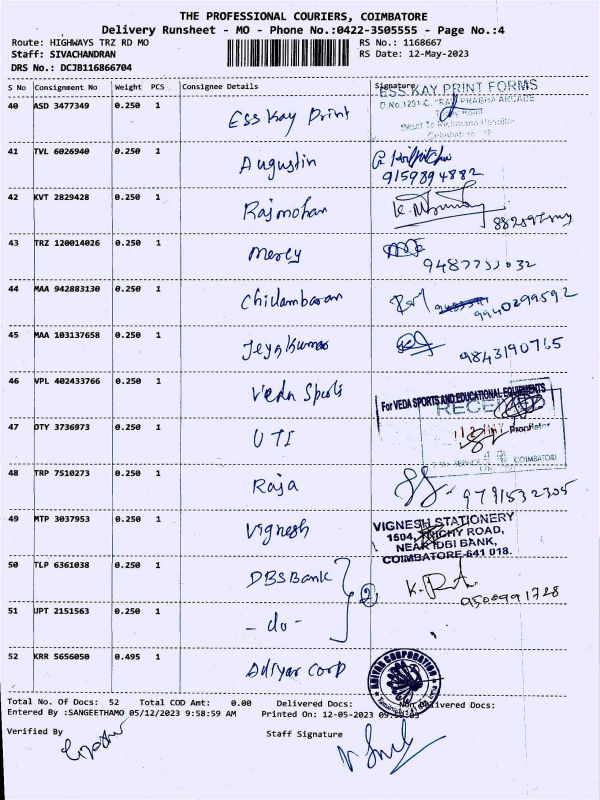 THE PROFESSIONAL COURIERS, COIMBATORE
Delivery Runsheet - MO - Phone No.:0422-3505555 - Page No.:4
Route: HIGHWAYS TRZ RD MO RS No.: 1168667
Staff: SIVACHANDRAN RS Date: 12-May-2023
DRS No.: DCJB116866704
S No Consignment No Weight PCS Consignee Details Signature
ESS KAY PRINT FORMS
40 ASD 3477349 0.250 1 Ess Kay Print
41 TVL 6026940 0.250 1 Augustin
9159894882
42 KVT 2829428 0.250 1 Rajmohan
43 TRZ 120014026 0.250 1 Mercy
44 MAA 942883130 0.250 1 Chidambaram 9940299592
45 MAA 103137658 0.250 1 Jeyakumar 9843190765
46 VPL 402433766 0.250 1 Veda Sports
For VEDA SPORTS AND EDUCATIONAL EQUIPMENTS
47 OTY 3736973 0.250 1 UTI Proprietor
COIMBATORE
48 TRP 7510273 0.250 1 Raja 9791532305
49 MTP 3037953 0.250 1 Vignesh
VIGNESH STATIONERY
1504, TRICHY ROAD,
NEAR IDBI BANK,
COIMBATORE-641 018.
50 TLP 6361038 0.250 1 DBS Bank 2
9500991728
51 UPT 2151563 0.250 1 - do -
52 KRR 5656050 0.495 1 Adiyar Corp
Total No. Of Docs: 52 Total COD Amt: 0.00 Delivered Docs: Non Delivered Docs:
Entered By :SANGEETHAMO 05/12/2023 9:58:59 AM Printed On: 12-05-2023
Verified By Staff Signature